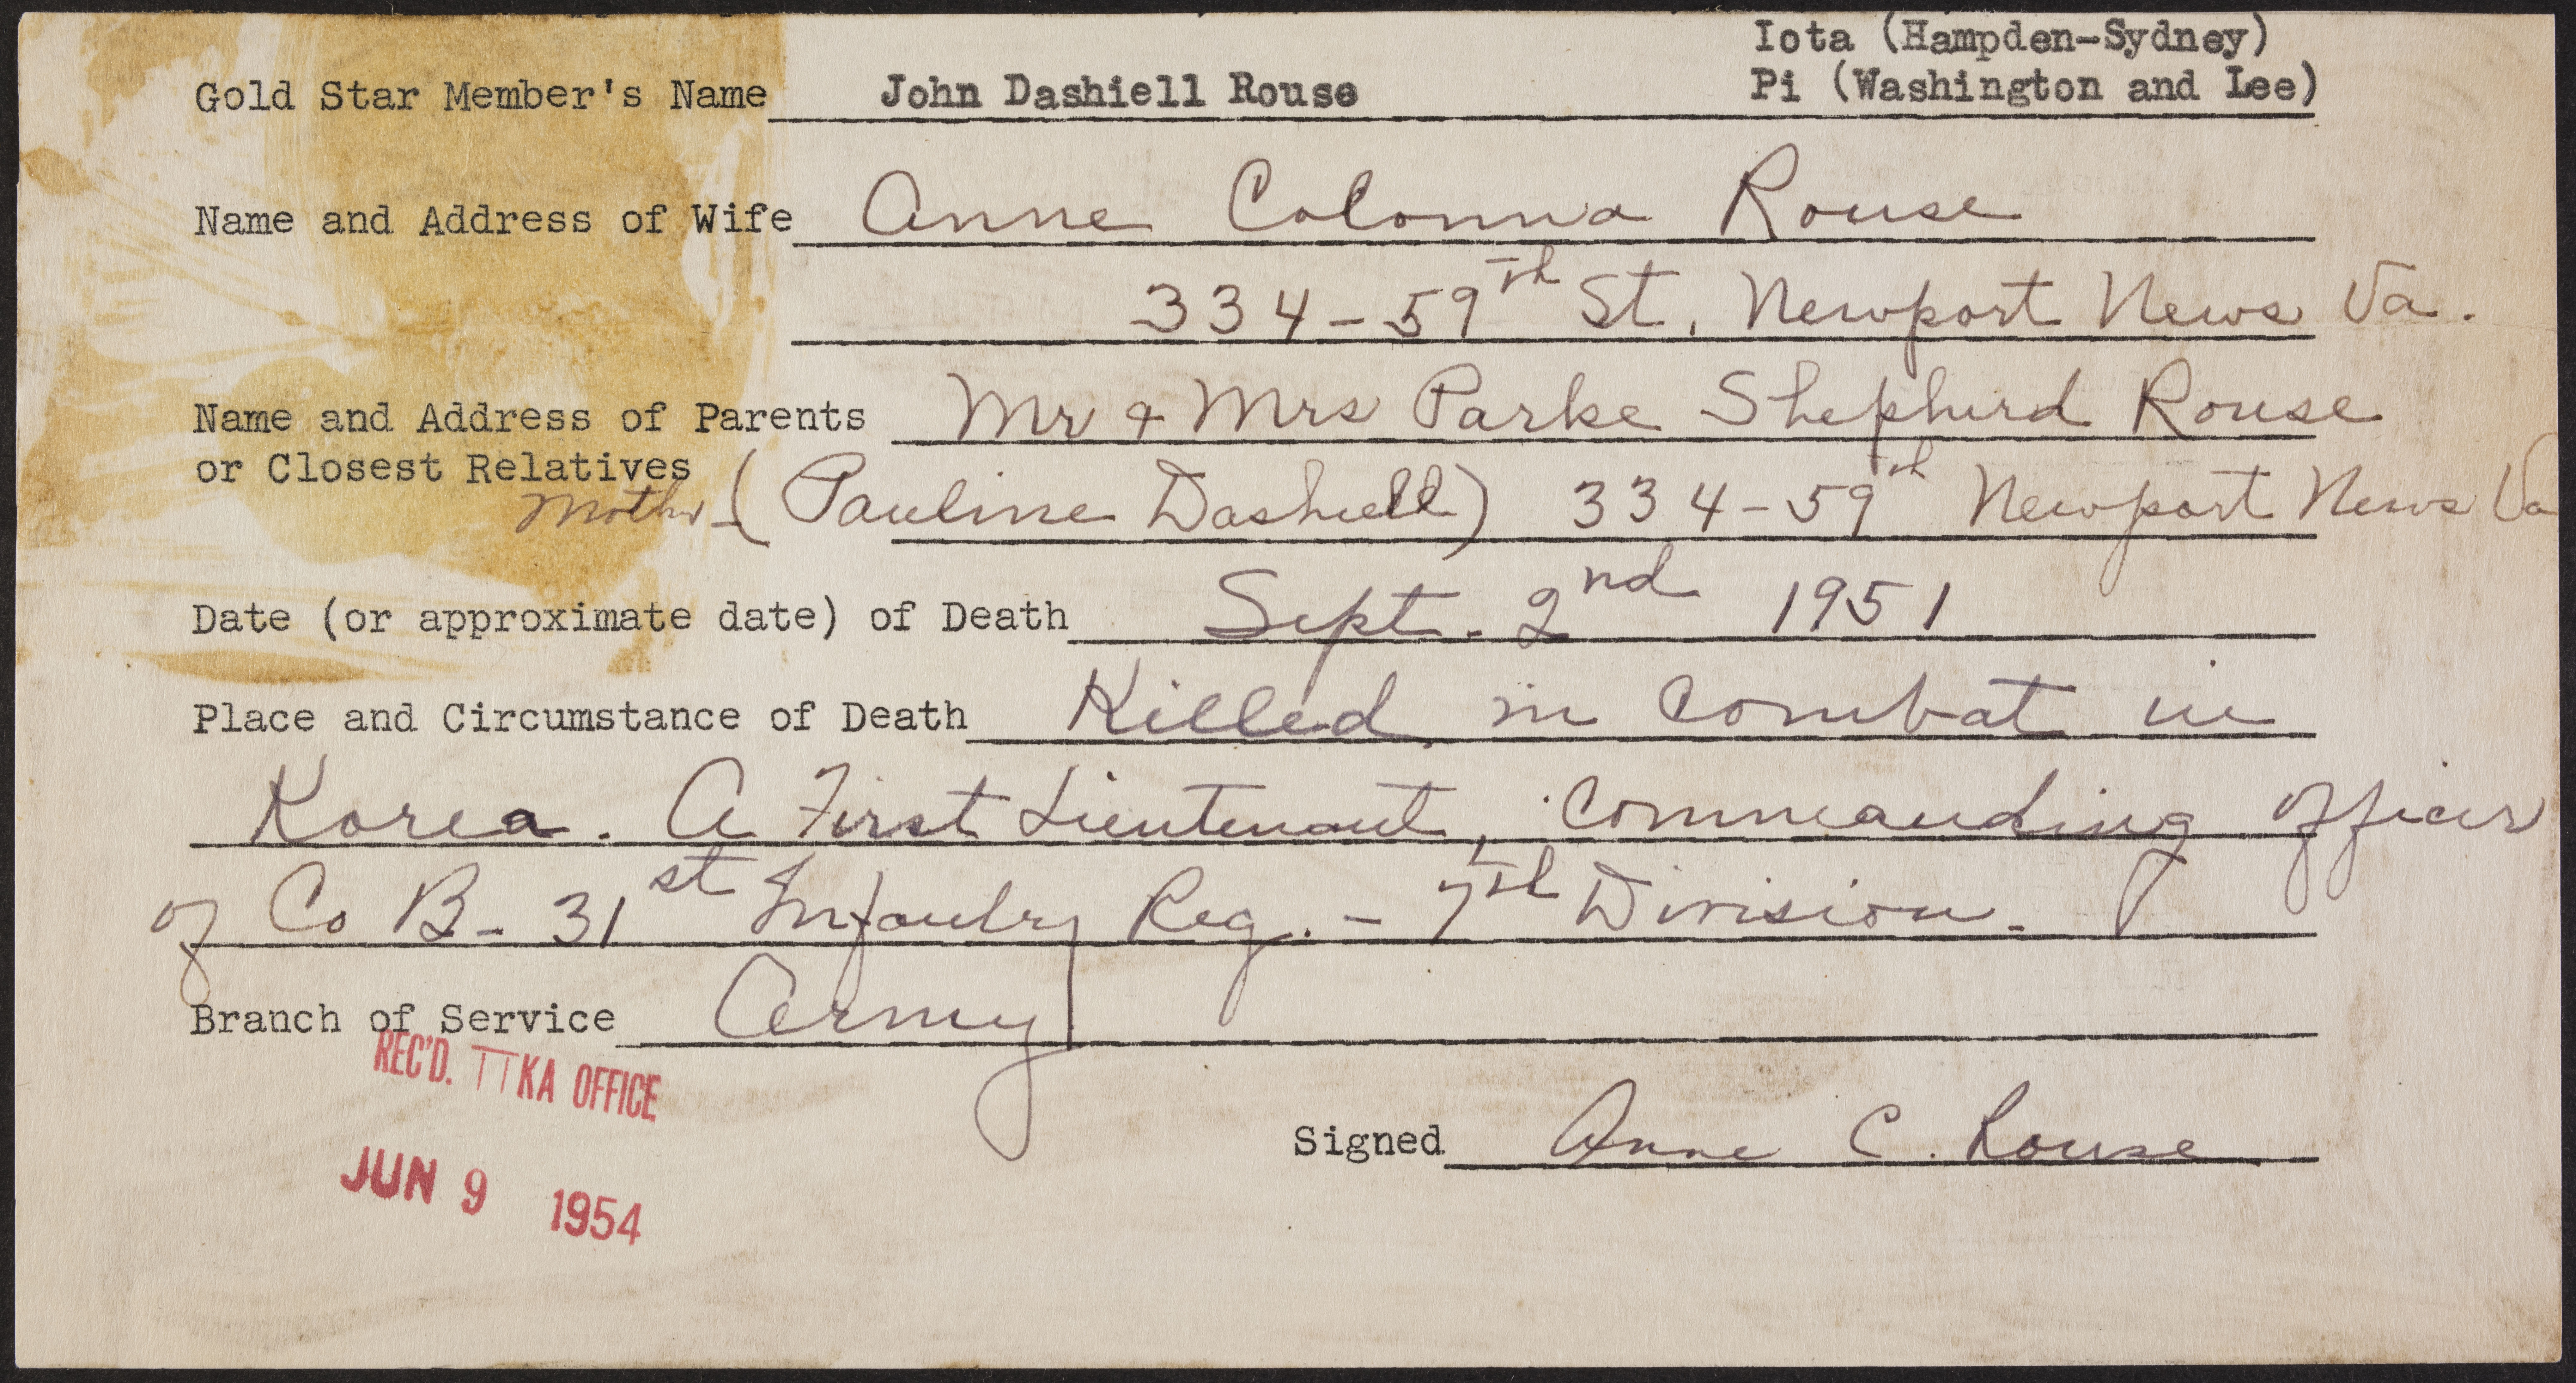 Iota (Hampden-Sydney)
Gold Star Member's Name John Dashiell Rouse Pi (Washington and Lee)
Name and Address of Wife Anne Colonna Rouse
334-59th St. Newport News Va.
Name and Address of Parents Mr & Mrs Parke Shepherd Rouse
or Closest Relatives
Mother - (Pauline Dashiell) 334-59th Newport News Va
Date (or approximate date) of Death Sept. 2nd 1951
Place and Circumstance of Death Killed in combat in
Korea. A First Lieutenant, Commanding officer
of Co B - 31st Infantry Reg. - 7th Division.
Branch of Service Army
REC'D. ΠKA OFFICE
Signed Anne C. Rouse
JUN 9 1954